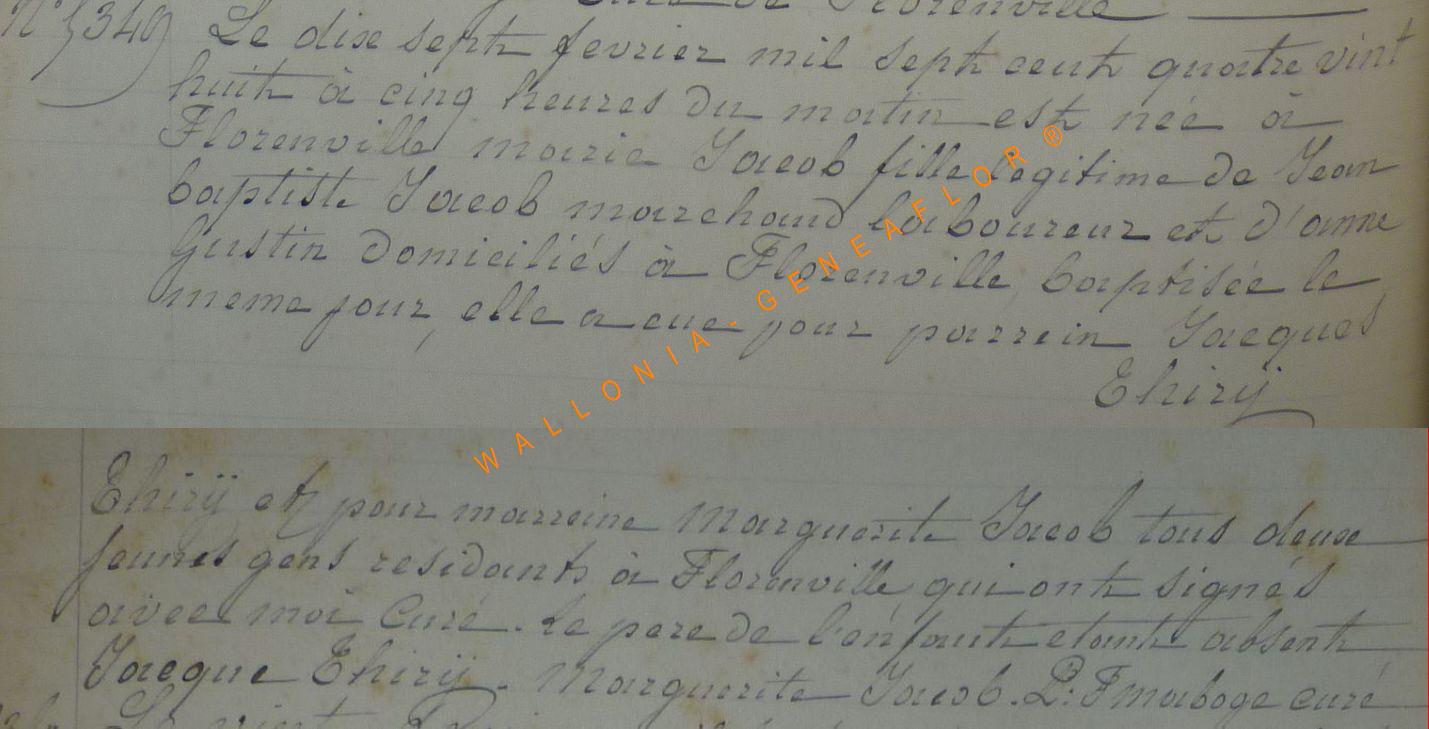 Curé de Florenville
N° 5340 Le dixe sept fevrier mil sept cent quatre vint
huit à cinq heures du matin est née à
Florenville marie Jacob fille legitime de Jean
baptiste Jacob marchand laboureur et d'anne
Gustin domiciliés à Florenville, baptisée le
meme jour, elle a eue pour parrein Jacques
Thirÿ
WALLONIA - GENEAFLOR ®
Thirÿ et pour marreine Marguerite Jacob tous deuxe
jeunes gens residants à Florenville, qui ont signés
avec moi Curé. Le pere de l'enfant etant absent
Jacque Thirÿ. Marguerite Jacob. P: F maboge curé
Le vint